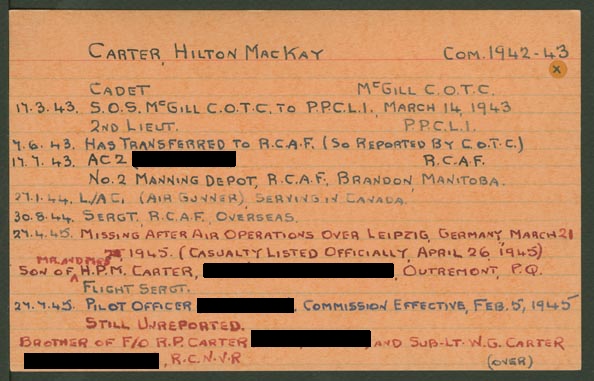 CARTER, HILTON MACKAY COM. 1942-43
x
CADET McGILL C.O.T.C.
17.3.43. S.O.S. McGILL C.O.T.C. TO P.P.C.L.I., MARCH 14, 1943
2ND LIEUT. P.P.C.L.I.
7.6.43. HAS TRANSFERRED TO R.C.A.F. (SO REPORTED BY C.O.T.C.)
17.7.43. AC2 R.C.A.F.
NO. 2 MANNING DEPOT, R.C.A.F., BRANDON, MANITOBA.
27.1.44. L/AC, (AIR GUNNER), SERVING IN CANADA.
30.8.44. SERGT., R.C.A.F., OVERSEAS.
27.4.45. MISSING AFTER AIR OPERATIONS OVER LEIPZIG, GERMANY, MARCH 21
1945. (CASUALTY LISTED OFFICIALLY, APRIL 26, 1945)
MR. AND MRS.
SON OF H.P.M. CARTER, OUTREMONT, P.Q.
FLIGHT SERGT.
27.7.45. PILOT OFFICER , COMMISSION EFFECTIVE, FEB. 5, 1945
STILL UNREPORTED.
BROTHER OF F/O R.P. CARTER , AND SUB-LT. W.G. CARTER
, R.C.N.V.R
(OVER)